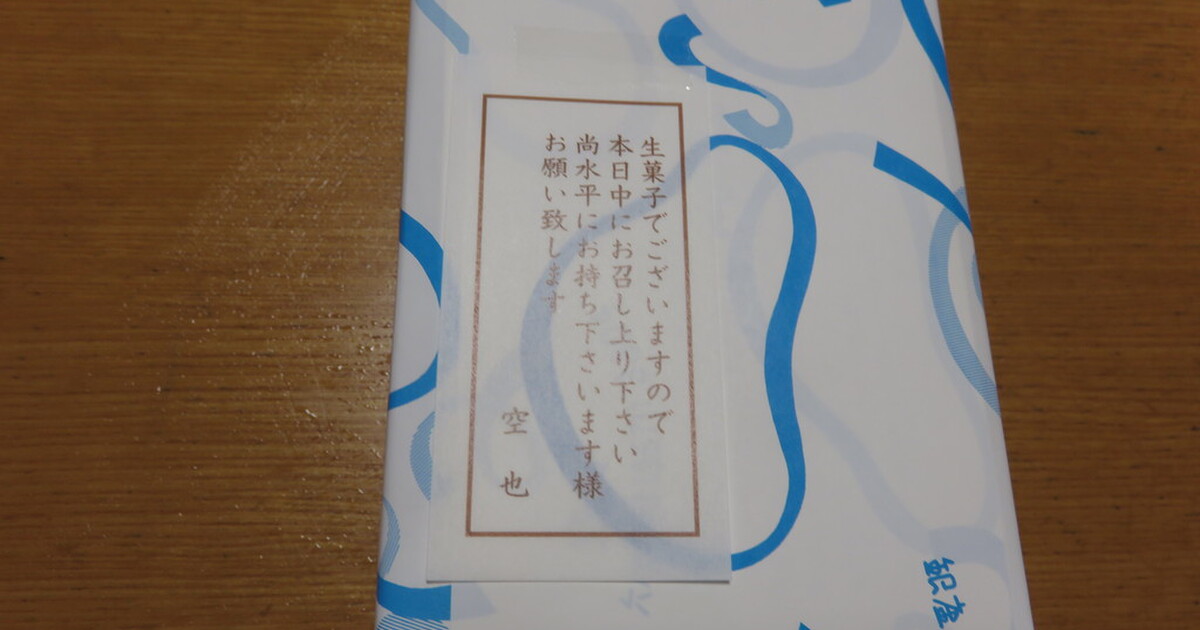 生菓子でございますので
本日中にお召し上り下さい
尚水平にお持ち下さいます様
お願い致します
空也
銀座